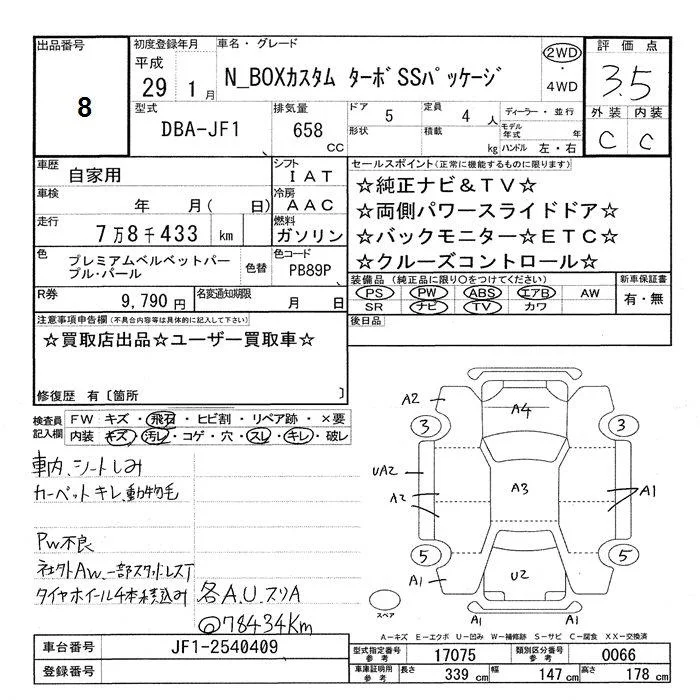 出品番号
8
初度登録年月
平成
29 1月
車名・グレード
N_BOXカスタム ターボSSパッケージ
2WD
・
4WD
評価点
3.5
型式
DBA-JF1
排気量
658 CC
ドア 5
形状
定員 4 人
積載 kg
ディーラー・並行
モデル年式 年
ハンドル 左・右
外装 内装
C C
車歴 自家用
シフト IAT
車検 年 月( 日)
冷房 AAC
走行 7万8千433 km
燃料 ガソリン
色 プレミアムベルベットパープル・パール
色替
色コード PB89P
R券 9,790円
名変通知期限 月 日
セールスポイント(正常に機能するものに限ります)
☆純正ナビ&TV☆
☆両側パワースライドドア☆
☆バックモニター☆ETC☆
☆クルーズコントロール☆
装備品(純正品に限り〇をつけてください)
PS PW ABS エアB AW
SR ナビ TV カワ
新車保証書
有・無
後日品
注意事項申告欄(不具合内容等は具体的に記入して下さい)
☆買取店出品☆ユーザー買取車☆
修復歴 有〔箇所 〕
検査員記入欄
FW キズ・飛石・ヒビ割・リペア跡・×要
内装 キズ・汚レ・コゲ・穴・スレ・キレ・破レ
車内、シートしみ
カーペットキレ、動物毛
PW不良
社外AW、一部スタッドレスT
タイヤホイール4本積込み
各A.U.スリA
◎78434Km
A2
A4
3 3
UA2
A2
A3
A1
5 5
A1
U2
A1 A1
スペア
A-キズ E-エクボ U-凹み W-補修跡 S-サビ C-腐食 XX-交換済
車台番号 JF1-2540409
登録番号
型式指定番号 参考 17075
類別区分番号 参考 0066
車庫証明用 参考 長さ 339 cm 幅 147 cm 高さ 178 cm